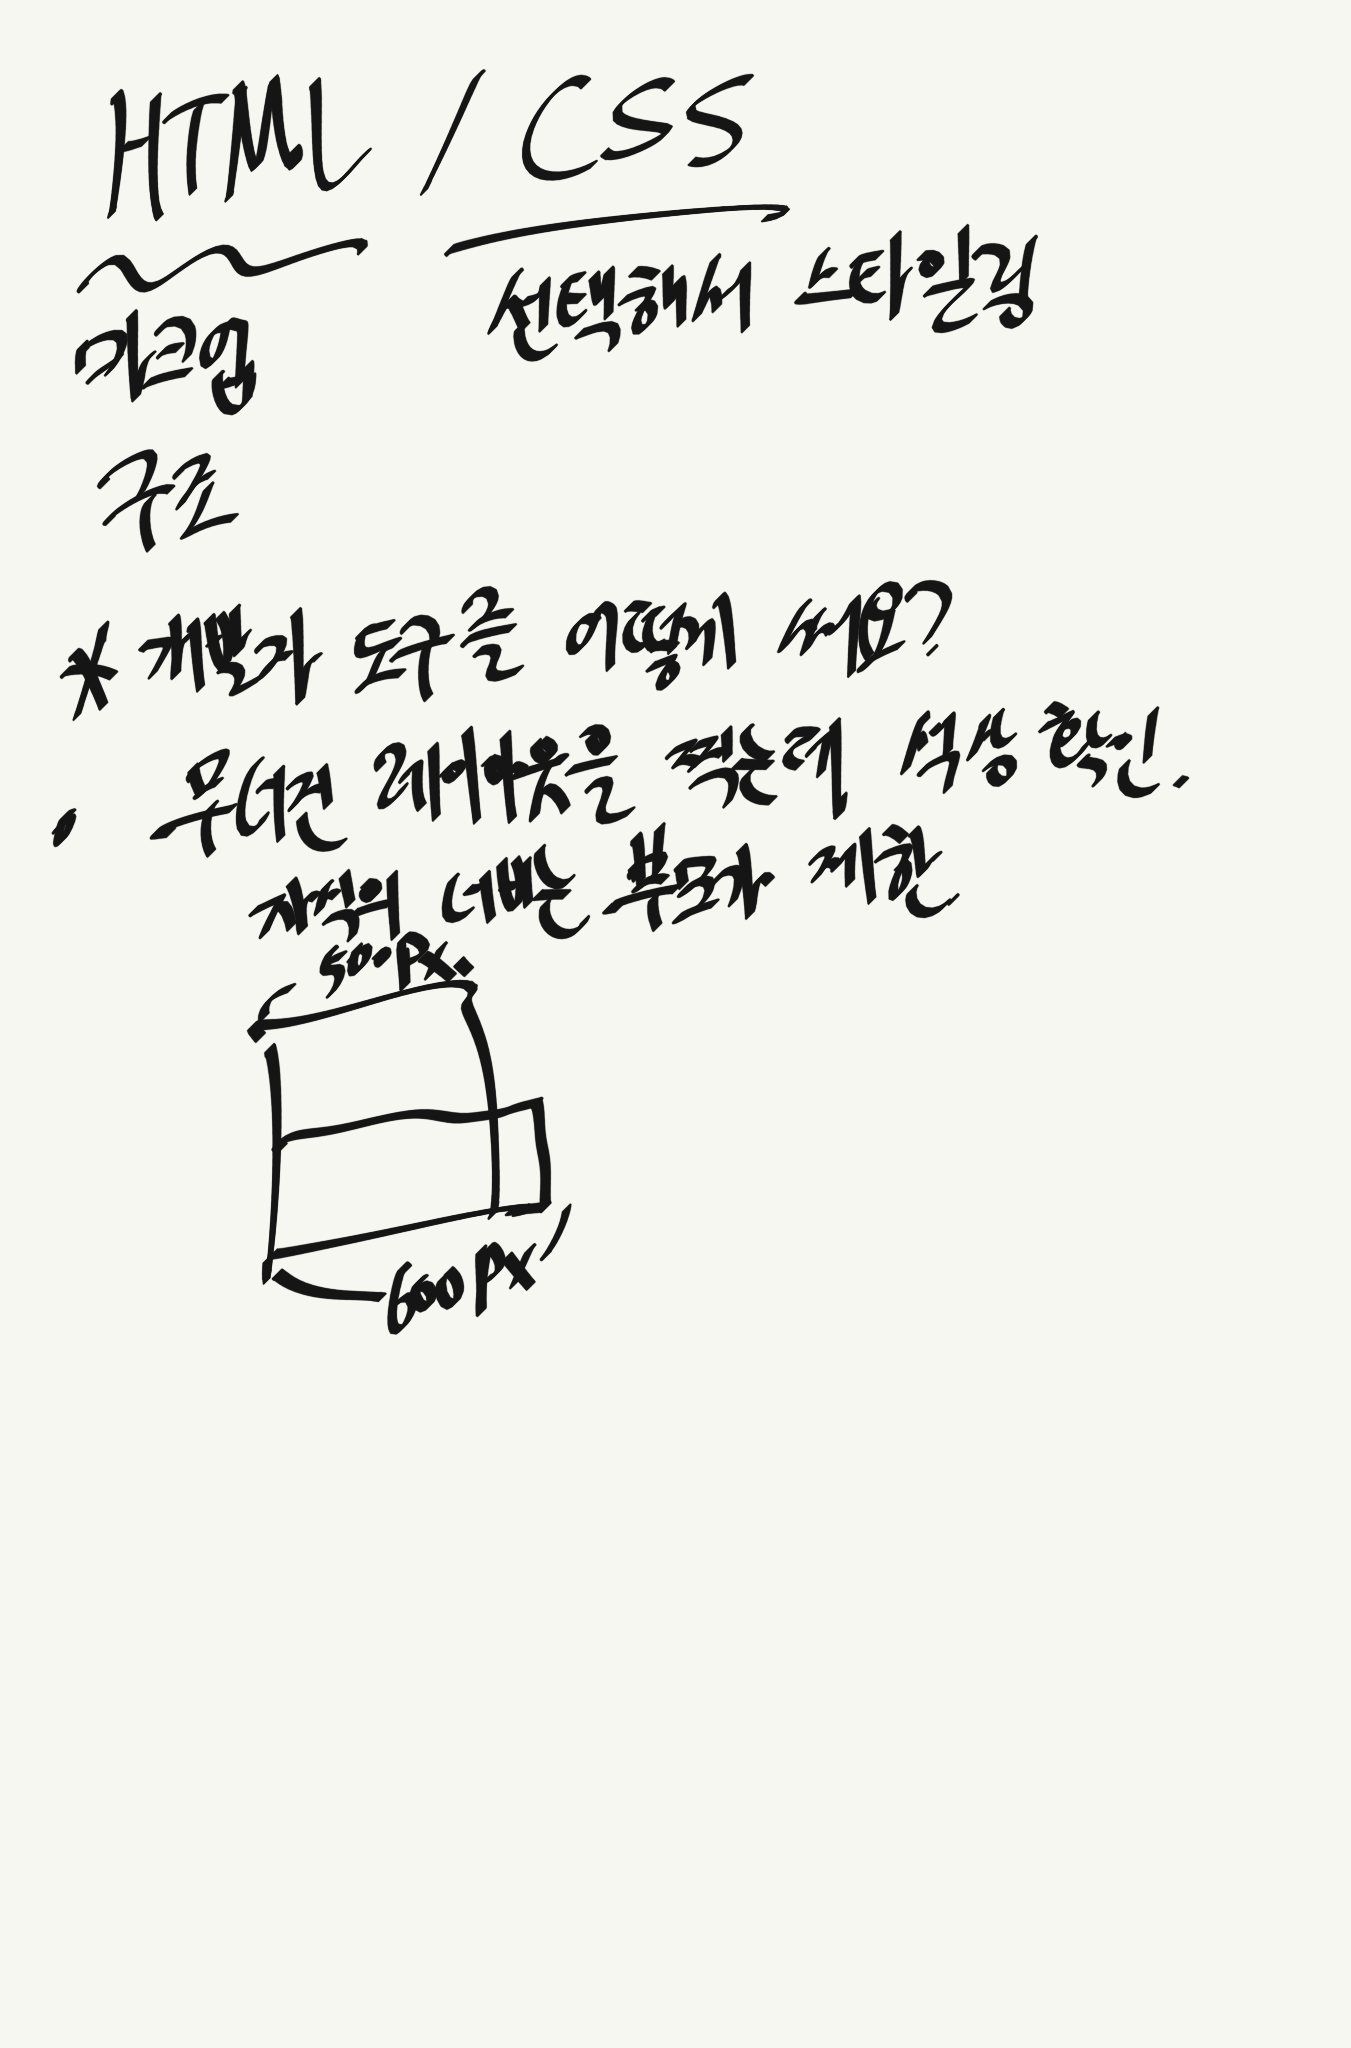 HTML / CSS
마크업
선택해서 스타일링
구조
* 개발자 도구를 어떻게 써요?
· 무너진 레이아웃을 찍는데 색상 확인.
자식의 너비는 부모가 제한
500px.
600px